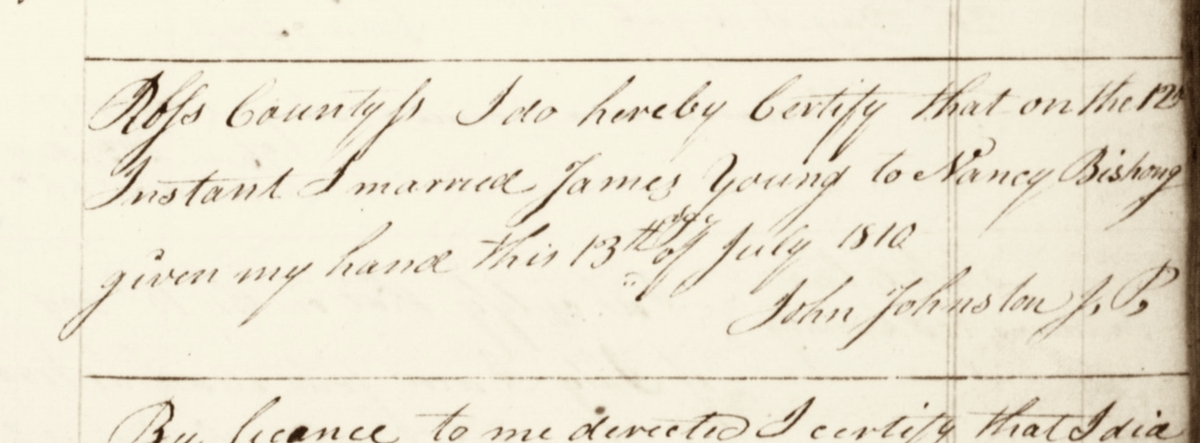 Ross County ss I do hereby Certify that on the 12th
Instant I married James Young to Nancy Bishong
given my hand this 13th day of July 1810
John Johnston J. P.
By licence to me derected I certify that I did